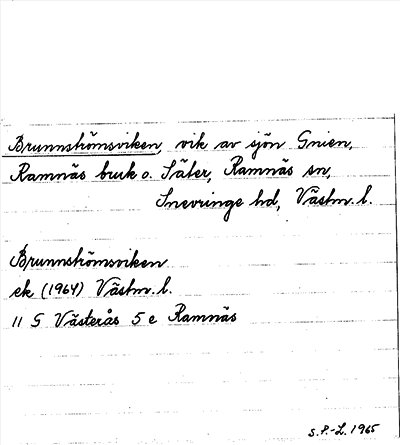 Brunnströmsviken, vik av sjön Gnien,
Ramnäs bruk o. Säter, Ramnäs sn,
Snevringe hd, Västm. l.
Brunnströmsviken
ek (1964) Västm. l.
11 G Västerås 5 e Ramnäs
S.P.-L. 1965